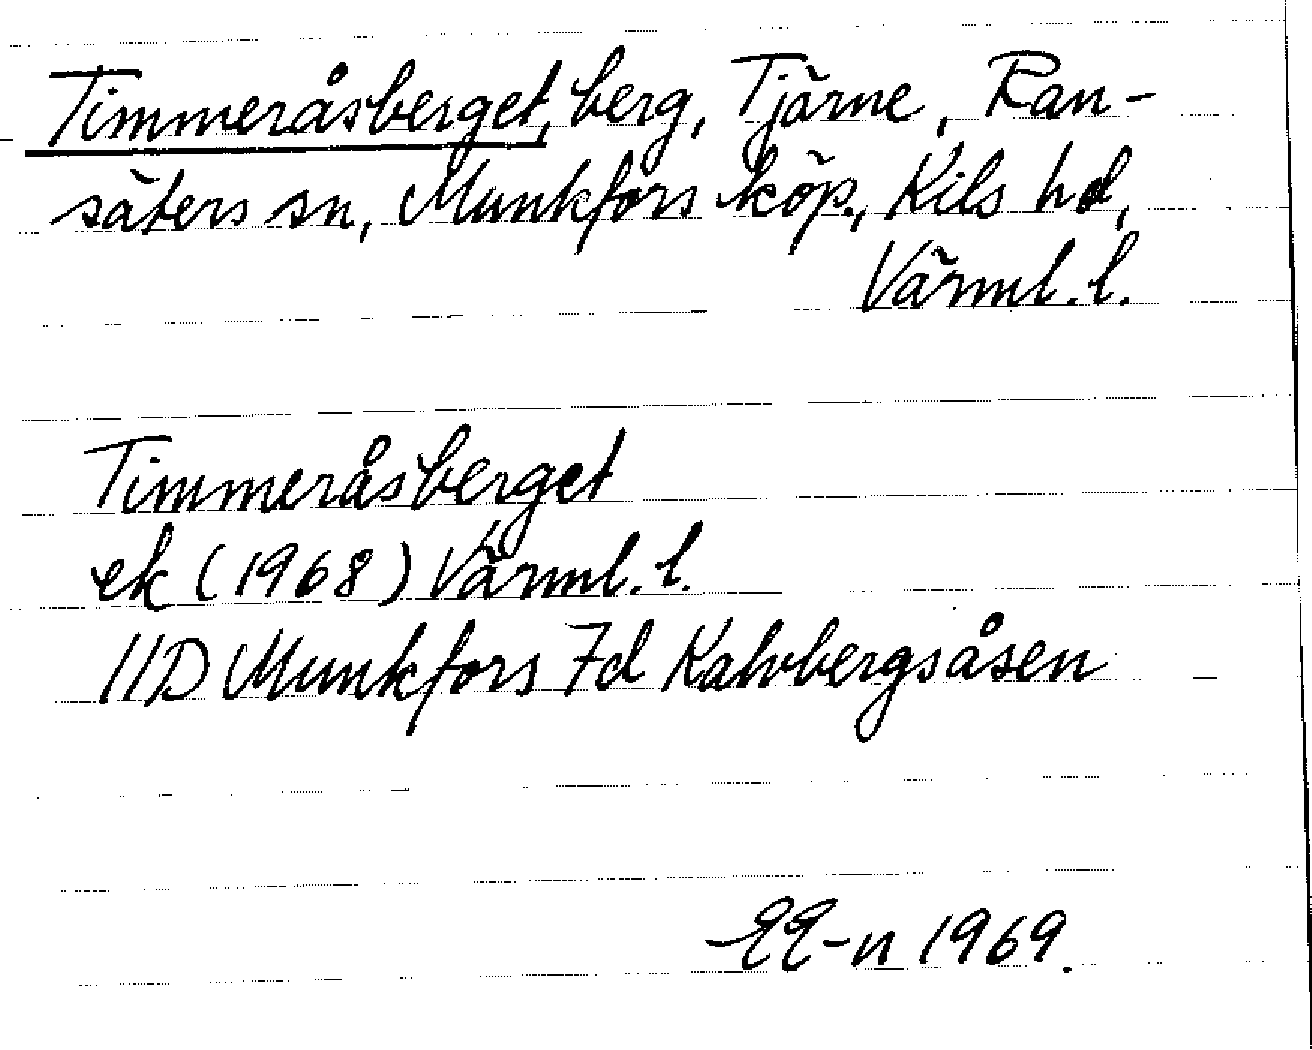 Timmeråsberget, berg, Tjärne, Ran-
säters sn, Munkfors köp., Kils hd,
Värml. l.
Timmeråsberget
ek (1968) Värml. l.
11D Munkfors 7d Kalvbergsåsen
EE-n 1969.